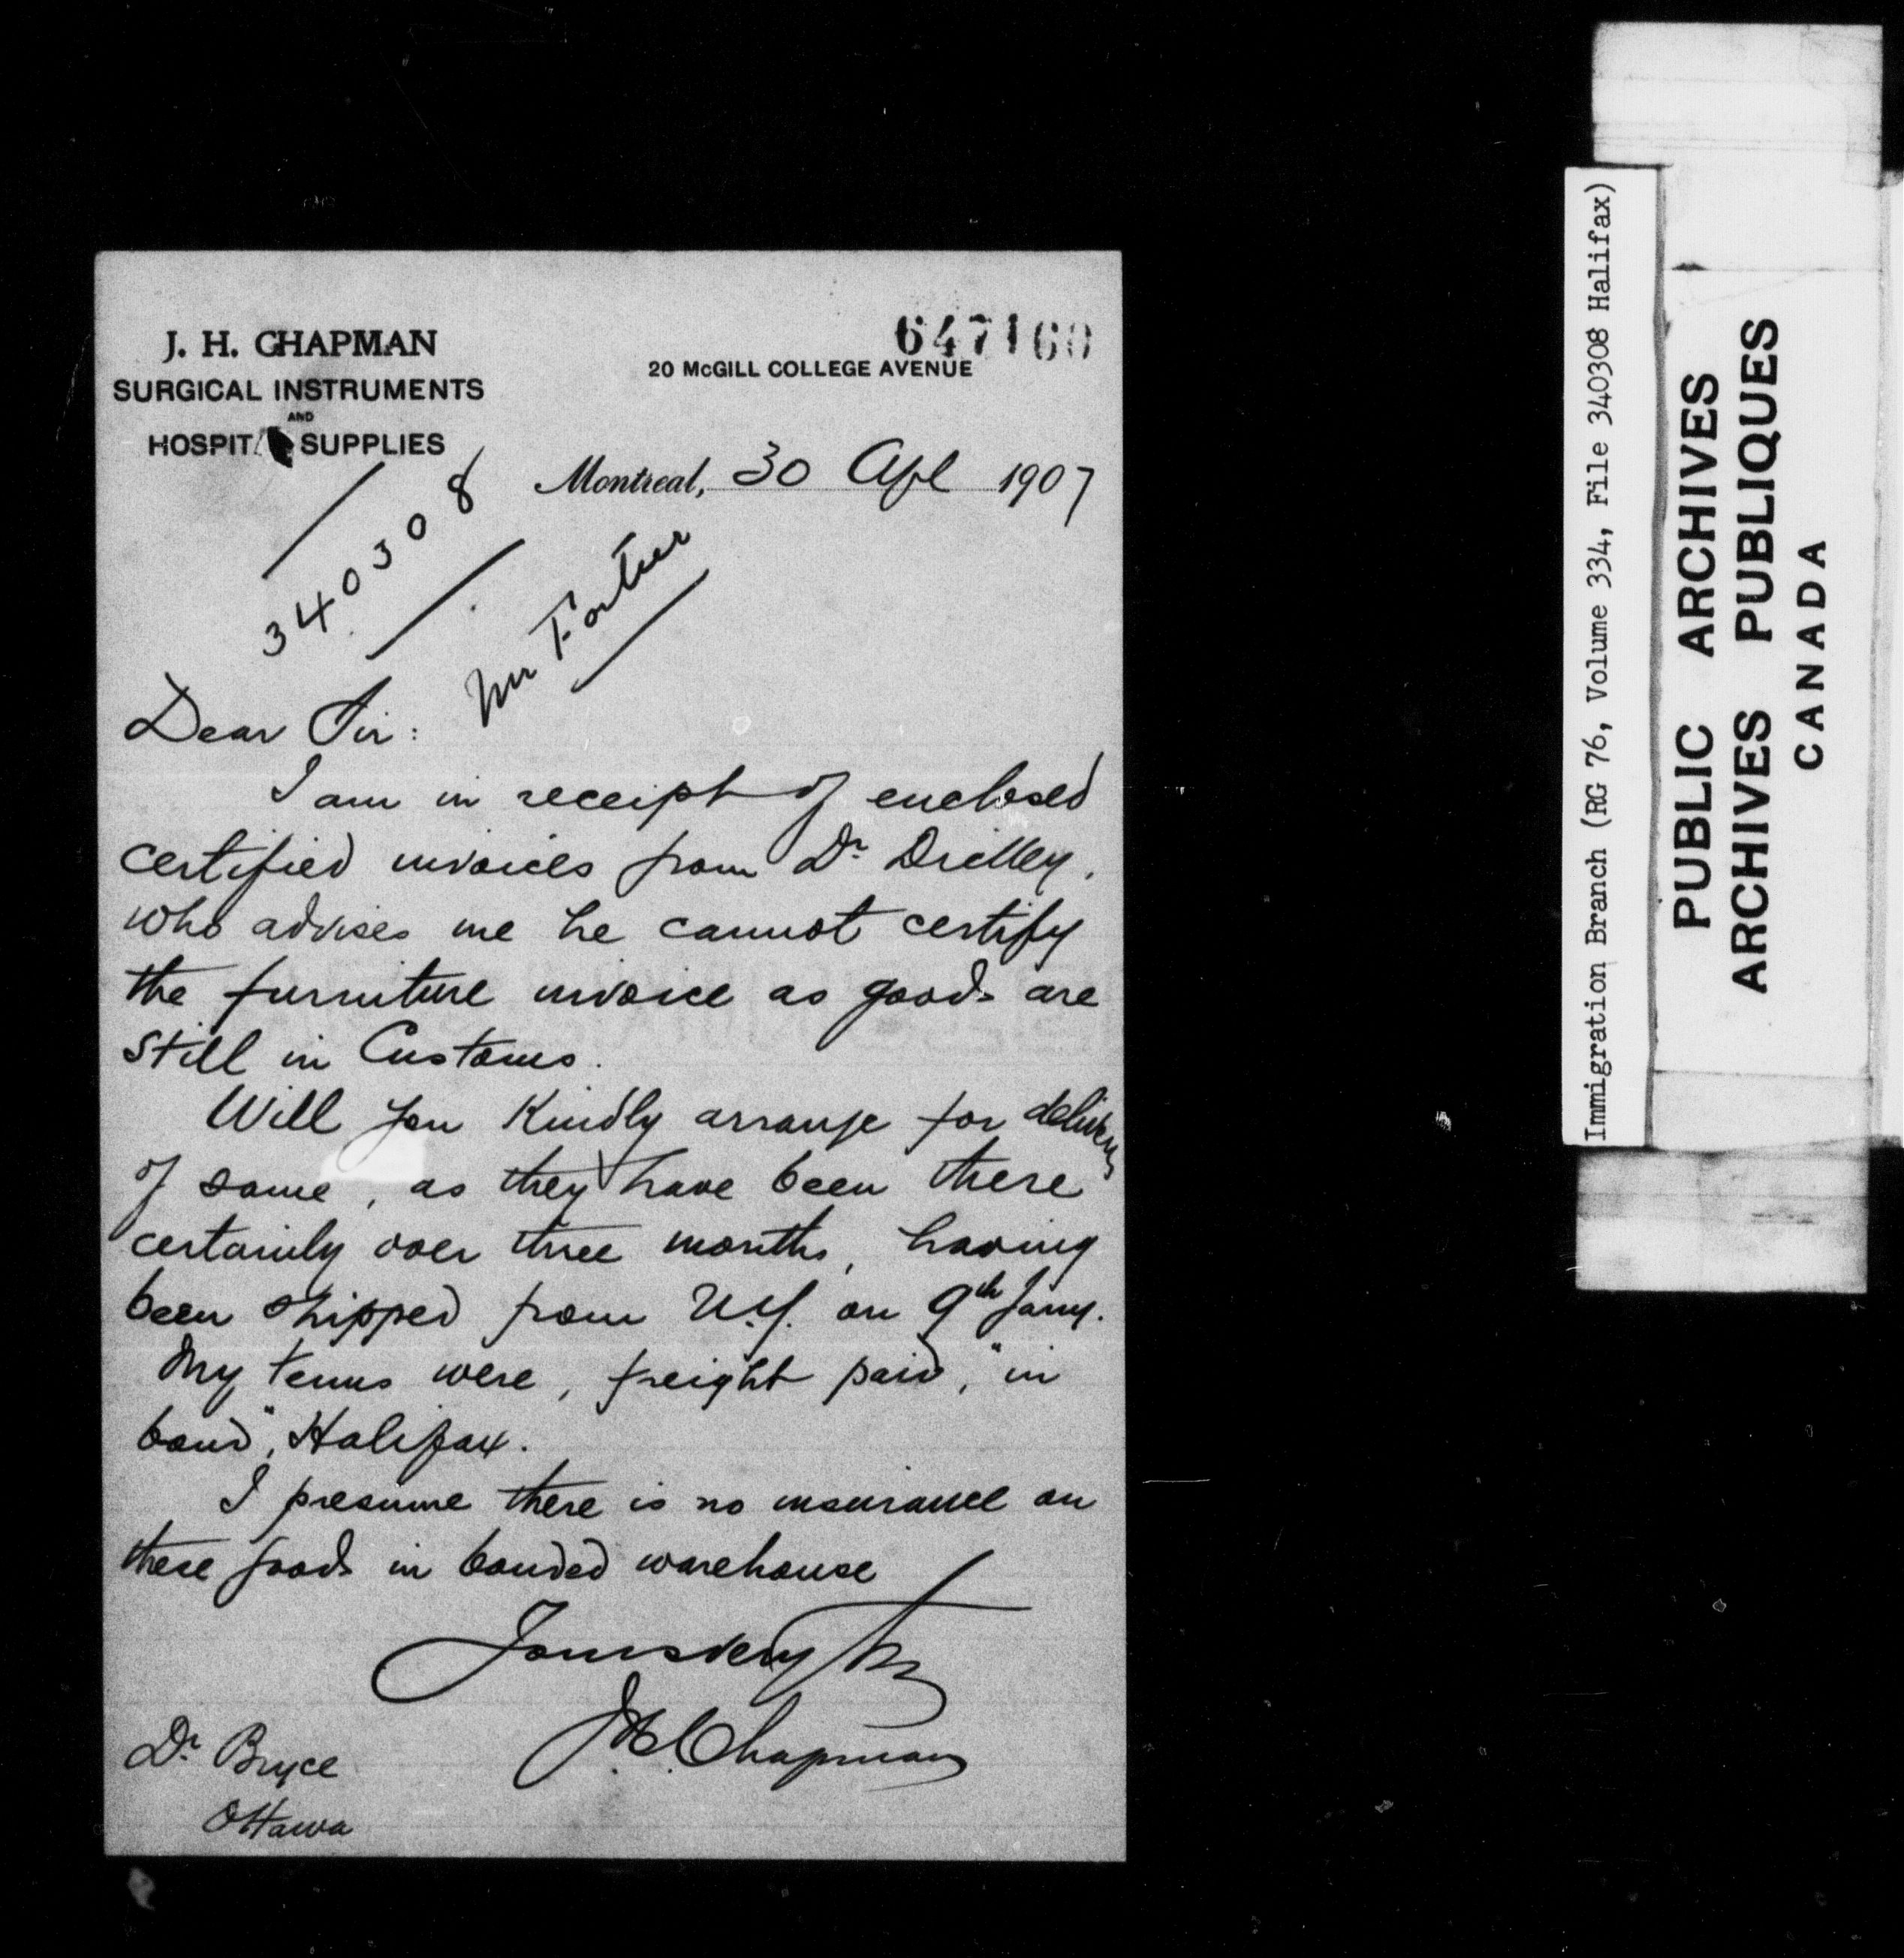 J. H. CHAPMAN
SURGICAL INSTRUMENTS
AND
HOSPIT SUPPLIES
647160
20 McGILL COLLEGE AVENUE
Montreal, 30 Apl 1907
340308
Mr Fortier
Dear Sir:
I am in receipt of enclosed
certified invoices from Dr
who advises me he cannot certify
the furniture invoice as goods are
still in Customs.
Will you Kindly arrange for delivery
of same, as they have been there
certainly over three months, having
been shipped from N.Y. on 9th Jany.
My terms were, freight paid, "in
bond", Halifax.
I presume there is no insurance on
these goods in bonded warehouse
Yours very
J.H. Chapman
Dr Bryce
Ottawa
Immigration Branch (RG 76, Volume 334, File 340308 Halifax)
PUBLIC ARCHIVES
ARCHIVES PUBLIQUES
CANADA